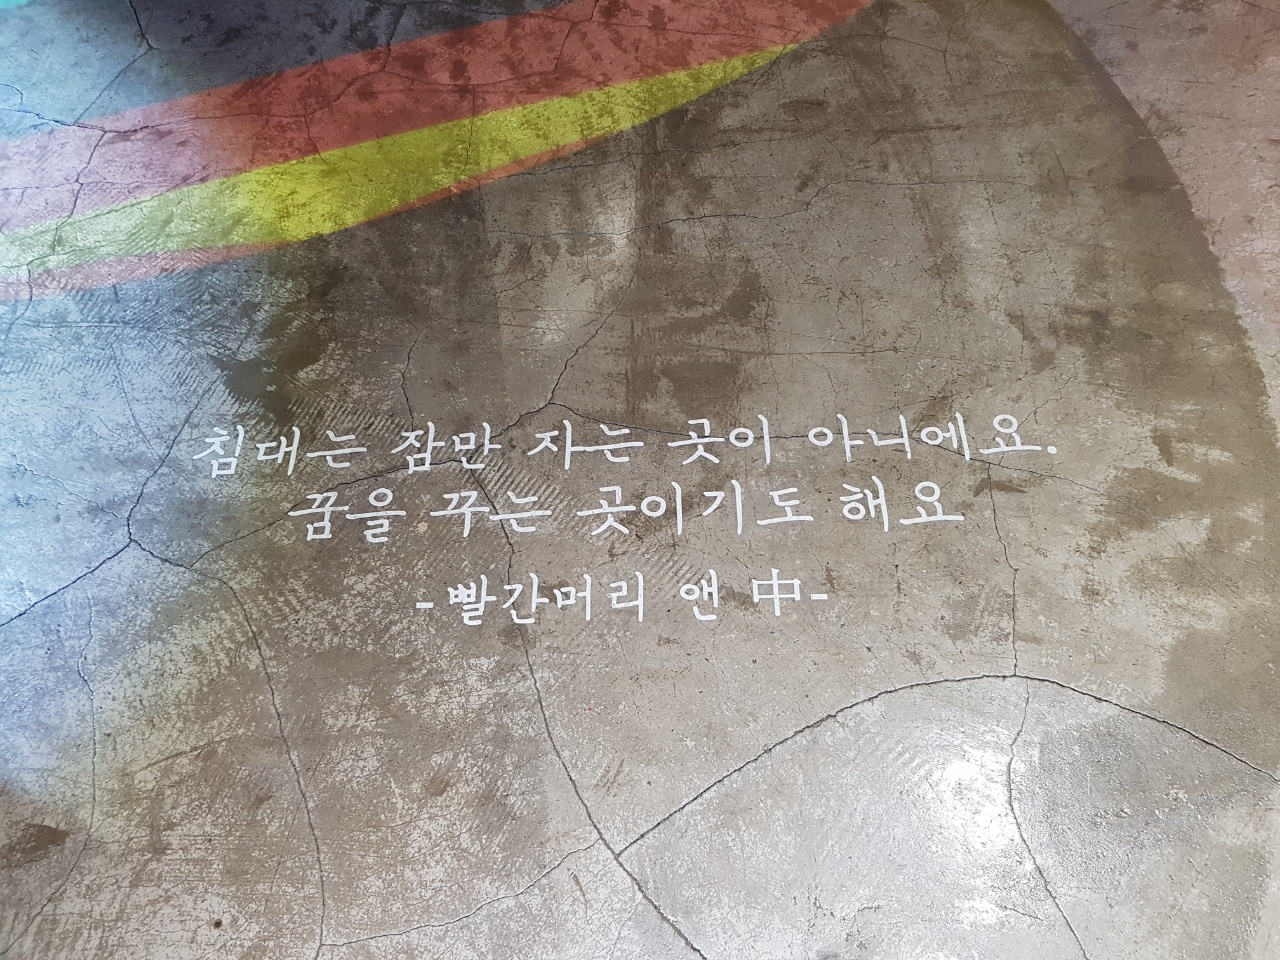 침대는 잠만 자는 곳이 아니에요.
꿈을 꾸는 곳이기도 해요
-빨간머리 앤 中-